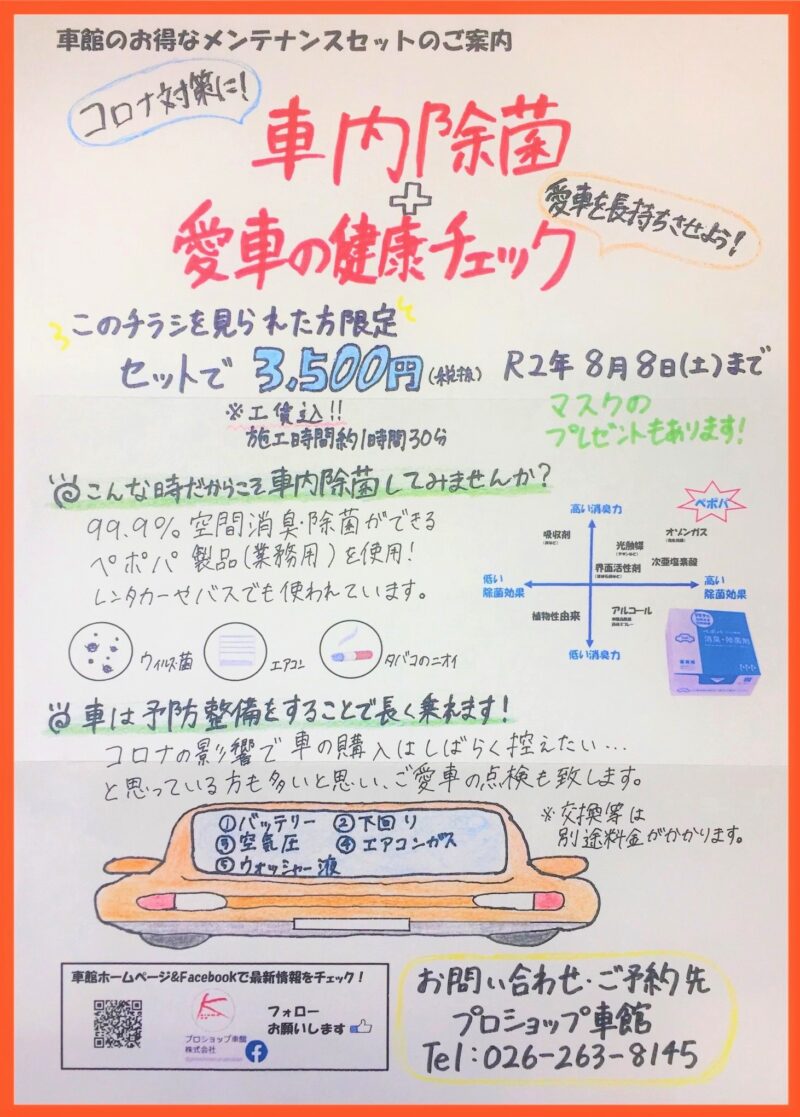 車館のお得なメンテナンスセットのご案内
コロナ対策に！
車内除菌
+
愛車を長持ちさせよう！
愛車の健康チェック
このチラシを見られた方限定
セットで 3,500円(税抜) R2年 8月8日(土)まで
※工賃込!!
施工時間約1時間30分
マスクの
プレゼントもあります！
こんな時だからこそ車内除菌してみませんか？
99.9% 空間消臭・除菌ができる
ペポパ 製品(業務用)を使用！
レンタカーやバスでも使われています。
ウィルス・菌
エアコン
タバコのニオイ
高い消臭力
ペポパ
吸収剤
光触媒
オゾンガス
界面活性剤
次亜塩素酸
低い
除菌効果
高い
除菌効果
植物性由来
アルコール
低い消臭力
ペポパ
消臭・除菌剤
車は予防整備をすることで長く乗れます！
コロナの影響で車の購入はしばらく控えたい…
と思っている方も多いと思い、ご愛車の点検も致します。
①バッテリー ②下回り
③空気圧 ④エアコンガス
⑤ウォッシャー液
※交換等は
別途料金がかかります。
車館ホームページ&Facebookで最新情報をチェック！
プロショップ車館
株式会社
フォロー
お願いします
お問い合わせ・ご予約先
プロショップ車館
Tel：026-263-8145